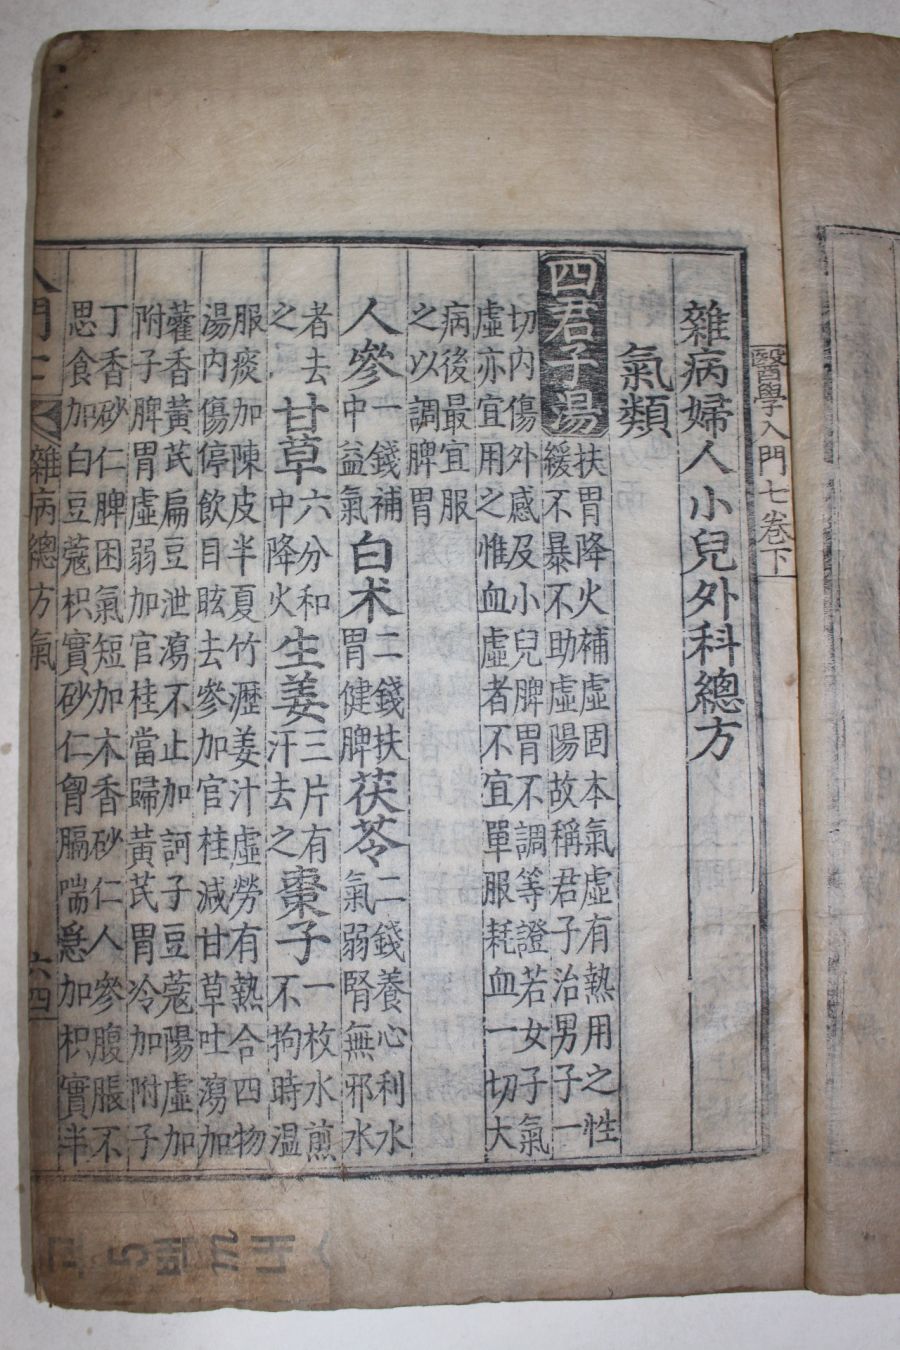 醫學入門七卷下
雜病婦人小兒外科總方
氣類
四君子湯
扶胃降火補虛固本氣虛有熱用之性
緩不暴不助虛陽故稱君子治男子一
切內傷外感及小兒脾胃不調等證若女子氣
虛亦宜用之惟血虛者不宜單服耗血一切大
病後最宜服
之以調脾胃
人參
一錢補
中益氣
白术
二錢扶
胃健脾
茯苓
二錢養心利水
氣弱腎無邪水
者去
之
甘草
六分和
中降火
生姜
三片有
汗去之
棗子
一枚水煎
不拘時温
服痰加陳皮半夏竹瀝姜汁虛勞有熱合四物
湯內傷停飲目眩去參加官桂減甘草吐瀉加
藿香黃芪扁豆泄瀉不止加訶子豆蔻陽虛加
附子脾胃虛弱加官桂當歸黃芪胃冷加附子
丁香砂仁脾困氣短加木香砂仁人參腹脹不
思食加白豆蔻枳實砂仁胷膈喘急加枳實半
入門七
雜病總方氣
六四